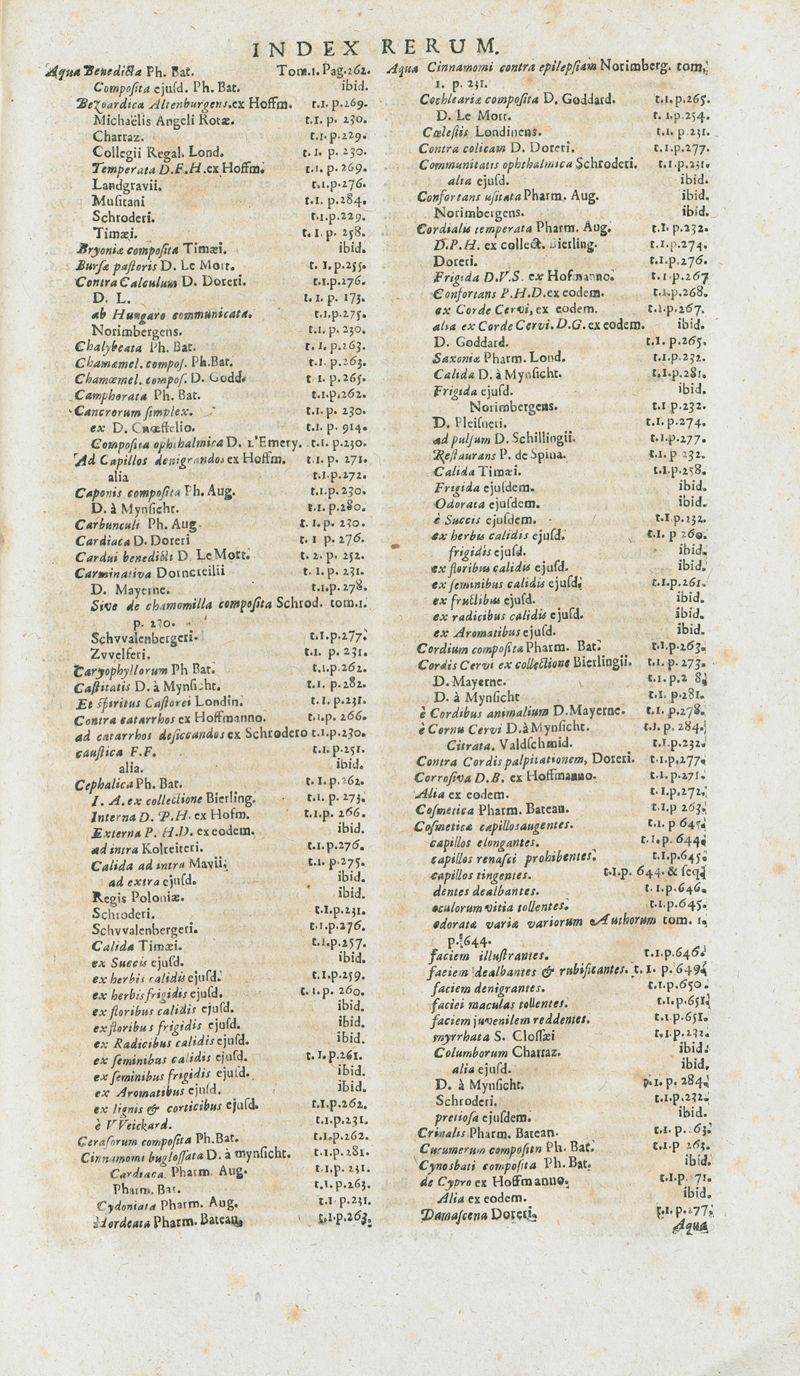 INDEX RERUM.
Aqua Benedicta Ph. Bat. Tom.1. Pag.262.
Composita ejusd. Ph. Bat. ibid.
Bezoardica Altenburgens.ex Hoffm. t.1. p.269.
Michaëlis Angeli Rotæ. t.1. p. 230.
Charraz. t.1.p.229.
Collegii Regal. Lond. t.1. p. 230.
Temperata D.F.H.ex Hoffm. t.1. p. 269.
Landgravii. t.1.p.276.
Musitani t.1. p.284.
Schroderi. t.1.p.229.
Timæi. t.1.p. 258.
Bryoniæ composita Timæi. ibid.
Bursæ pastoris D. Le Mort. t. 1.p.255.
Contra Calculum D. Doreri. t.1.p.276.
D. L. t.1. p. 173.
ab Hungaro communicata. t.1.p.275.
Norimbergens. t.1. p. 230.
Chalybeata Ph. Bat. t. 1. p.263.
Chamæmel. compos. Ph.Bat. t.1. p.263.
Chamæmel. compos. D. Godd. t 1. p.265.
Camphorata Ph. Bat. t.1.p.262.
Cancrorum simplex. t.1. p. 230.
ex D. Cnœffelio. t.1. p. 914.
Composita ophthalmica D. l'Emery. t.1. p.230.
Ad Capillos denigrandos ex Hoffm. t 1. p. 271.
alia t.1.p.272.
Caponis composita Ph. Aug. t.1.p.230.
D. à Mynsicht. t.1. p.280.
Carbunculi Ph. Aug. t. 1. p. 230.
Cardiaca D. Doreri t. 1 p. 276.
Cardui benedicti D. Le Mort. t. 2. p. 252.
Carminativa Dorncreilii t. 1. p. 231.
D. Mayerne. t.1.p.278.
Sive de chamomilla composita Schrod. tom.1.
p. 230.
Schvvalenbergeri. t.1.p.277.
Zvvelferi. t.1. p. 231.
Caryophyllorum Ph Bat. t.1.p.262.
Castitatis D. à Mynsicht. t.1. p.282.
Et spiritus Castorei Londin. t. 1. p.231.
Contra catarrhos ex Hoffmanno. t.1.p. 266.
ad catarrhos deficcandos ex Schrodero t.1.p.230.
caustica F.F. t.1. p.251.
alia. ibid.
Cephalica Ph. Bat. t. 1. p.262.
I. A. ex collectione Bierling. t.1. p. 273.
Interna D. P.H. ex Hofm. t.1.p. 266.
Externa P. H.D. ex eodem. ibid.
ad intra Kolreiteri. t.1.p.276.
Calida ad intra Mavii. t.1. p.275.
ad extra ejusd. ibid.
Regis Poloniæ. ibid.
Schroderi. t.1.p.231.
Schvvalenbergeri. t.1.p.276.
Calida Timæi. t.1.p.257.
ex Succis ejusd. ibid.
ex herbis calidis ejusd. t.1.p.259.
ex herbis frigidis ejusd. t. 1. p. 260.
ex floribus calidis ejusd. ibid.
ex floribus frigidis ejusd. ibid.
ex Radicibus calidis ejusd. ibid.
ex seminibus calidis ejusd. t. 1. p.261.
ex seminibus frigidis ejusd. ibid.
ex Aromatibus ejusd. ibid.
ex lignis & corticibus ejusd. t.1.p.262.
è VVeickard. t.1.p.231.
Cerasorum composita Ph.Bat. t.1.p.262.
Cinnamomi buglossata D. à mynsicht. t.1.p. 281.
Cardiaca. Pharm. Aug. t.1.p. 231.
Pharm. Bat. t.1.p.263.
Cydoniata Pharm. Aug. t.1 p.231.
Hordeata Pharm. Batean. t.1.p.263.
Aqua Cinnamomi contra epilepsiam Norimberg. tom.
1. p. 231.
Cochleariæ composita D. Goddard. t.1.p.265.
D. Le Mort. t. 1.p.254.
Cœlestis Londinens. t.1. p.231.
Contra colicam D. Doreri. t.1.p.277.
Communitatis ophthalmica Schroderi. t.1.p.231.
alia ejusd. ibid.
Confortans usitata Pharm. Aug. ibid.
Norimbergens. ibid.
Cordialis temperata Pharm. Aug. t.1. p.232.
D.P.H. ex collect. Bierling. t.1.p.274.
Doreri. t.1.p.276.
Frigida D.V.S. ex Hofmanno. t.1.p.267
Confortans P.H.D.ex eodem. t.1.p.268.
ex Corde Cervi, ex eodem. t.1.p.267.
alia ex Corde Cervi. D.G. ex eodem. ibid.
D. Goddard. t.1. p.265.
Saxoniæ Pharm. Lond. t.1.p.232.
Calida D. à Mynsicht. t.1.p.281.
Frigida ejusd. ibid.
Norimbergens. t.1 p.232.
D. Pleisneri. t.1. p.274.
ad pulsum D. Schillingii. t.1.p.277.
Restaurans P. de Spina. t.1. p 232.
Calida Timæi. t.1.p.258.
Frigida ejusdem. ibid.
Odorata ejusdem. ibid.
è Succis ejusdem. t.1 p.232.
ex herbis calidis ejusd. t.1. p 260.
frigidis ejusd. ibid.
ex floribus calidis ejusd. ibid.
ex seminibus calidis ejusd. t.1.p.261.
ex fructibus ejusd. ibid.
ex radicibus calidis ejusd. ibid.
ex Aromatibus ejusd. ibid.
Cordium composita Pharm. Bat. t.1.p.263.
Cordis Cervi ex collectione Bierlingii. t.1. p. 273.
D. Mayerne. t.1. p.2 8
D. à Mynsicht t.1. p.281.
è Cordibus animalium D.Mayerne. t.1. p.278.
è Cornu Cervi D.à Mynsicht. t.1. p. 284.
Citrata. Valdschmid. t.1.p.232.
Contra Cordis palpitationem, Doreri. t.1.p.277.
Corrosiva D.B. ex Hoffmanno. t.1. p.271.
Alia ex eodem. t.1.p.272.
Cosmetica Pharm. Batean. t.1.p 263.
Cosmetica capillos augentes. t.1. p 645.
capillos elongantes. t.1.p. 644.
capillos renasci prohibentes. t.1.p.645.
capillos tingentes. t.1.p. 644. & seq.
dentes dealbantes. t. 1.p.646.
oculorum vitia tollentes. t.1.p.645.
odorata varia variorum Authorum tom. 1.
p. 644.
faciem illustrantes. t.1.p.646.
faciem dealbantes & rubificantes. t. 1. p. 649.
faciem denigrantes. t.1.p.650.
faciei maculas tollentes. t.1.p.651.
faciem juvenilem reddentes. t.1.p.651.
myrrhata S. Clossæi t.1.p.232.
Columborum Charraz. ibid.
alia ejusd. ibid.
D. à Mynsicht. p.1. p. 284.
Schroderi. t.1.p.232.
pretiosa ejusdem. ibid.
Crinalis Pharm. Batean. t.1. p. 63.
Cucumerum composita Ph. Bat. t.1.p 263.
Cynosbati composita Ph. Bat. ibid.
de Cypro ex Hoffmanno. t.1.p. 71.
Alia ex eodem. ibid.
Damascena Doreri. t.1.p.277.
Aqua